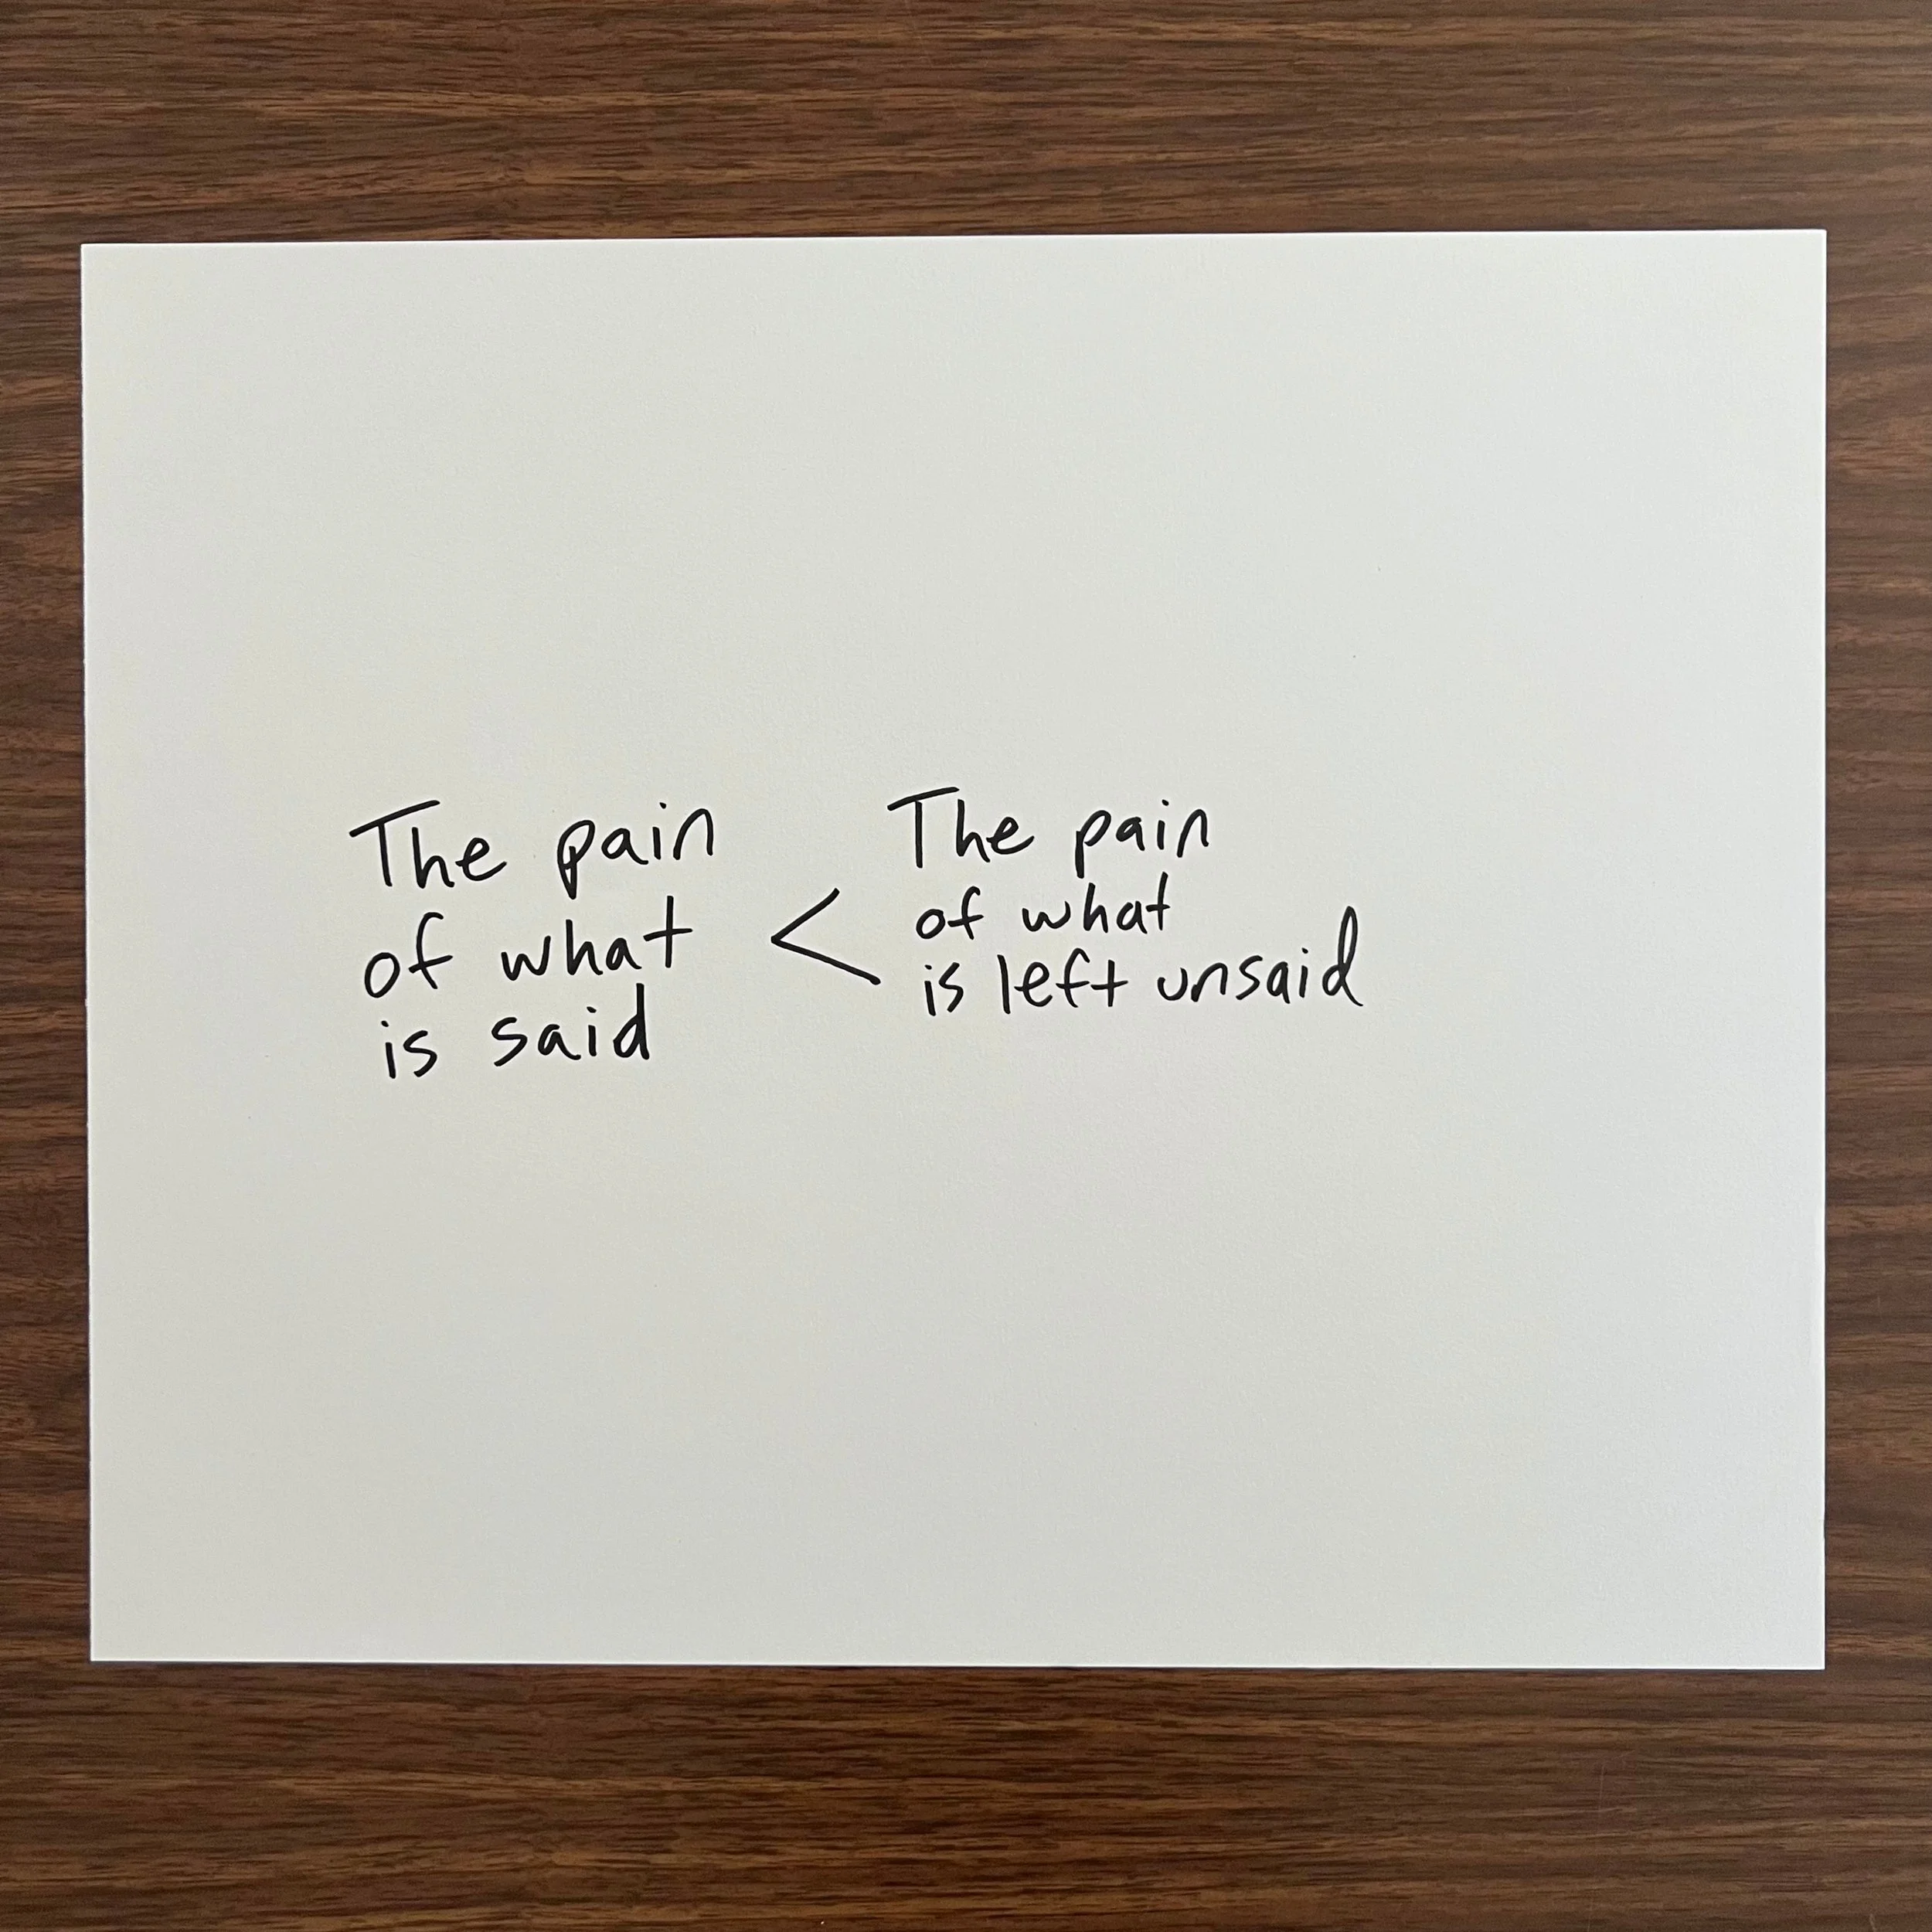 The pain
of what
is said
<
The pain
of what
is left unsaid